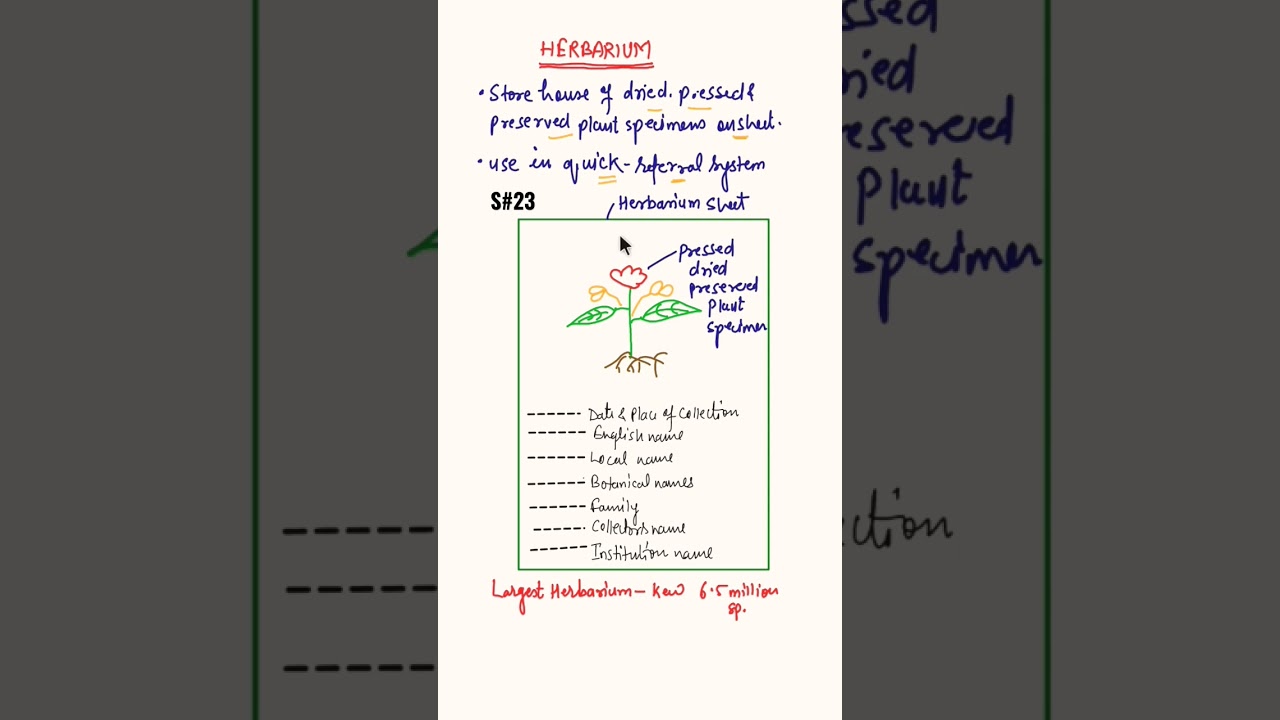 HERBARIUM
• Store house of dried, pressed &
preserved plant specimens on sheet.
• use in quick-referral system
S#23
Herbarium sheet
pressed
dried
preserved
plant
specimen
------ Date & Place of Collection
------ English name
------ Local name
------ Botanical names
------ family
------ Collectors name
------ Institution name
Largest Herbarium – Kew 6.5 million
sp.
ssed
ried
eserved
plant
specimen
ection